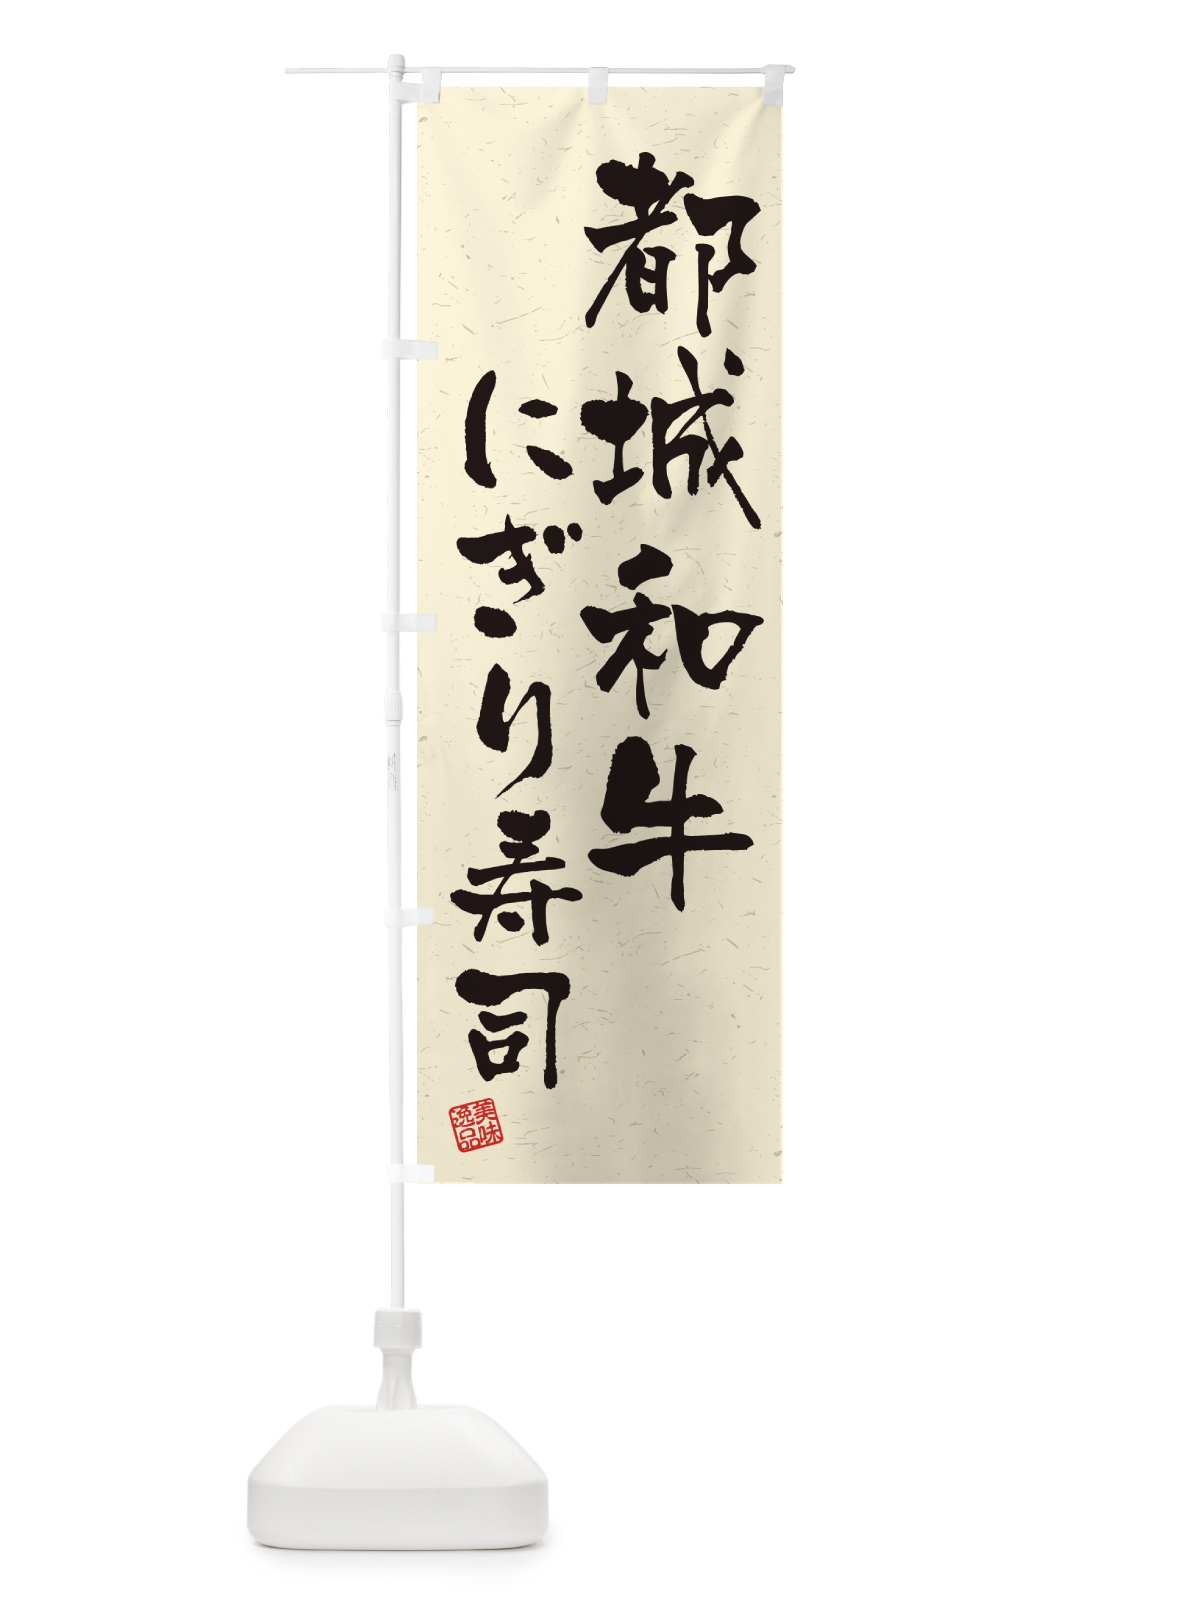 都城和牛
にぎり寿司
美味
逸品